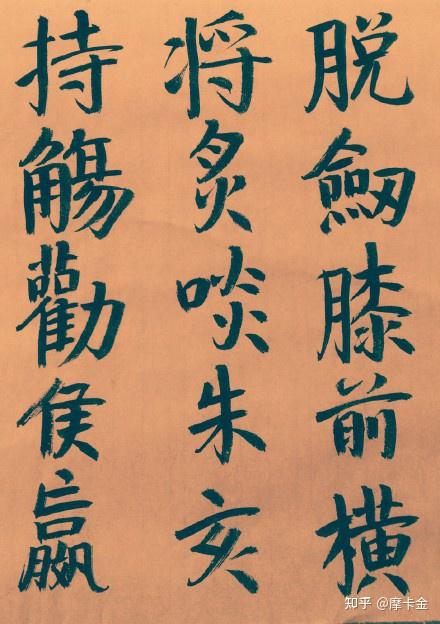 脱劔膝前横
将炙啖朱亥
持觴勸侯嬴
知乎 @摩卡金